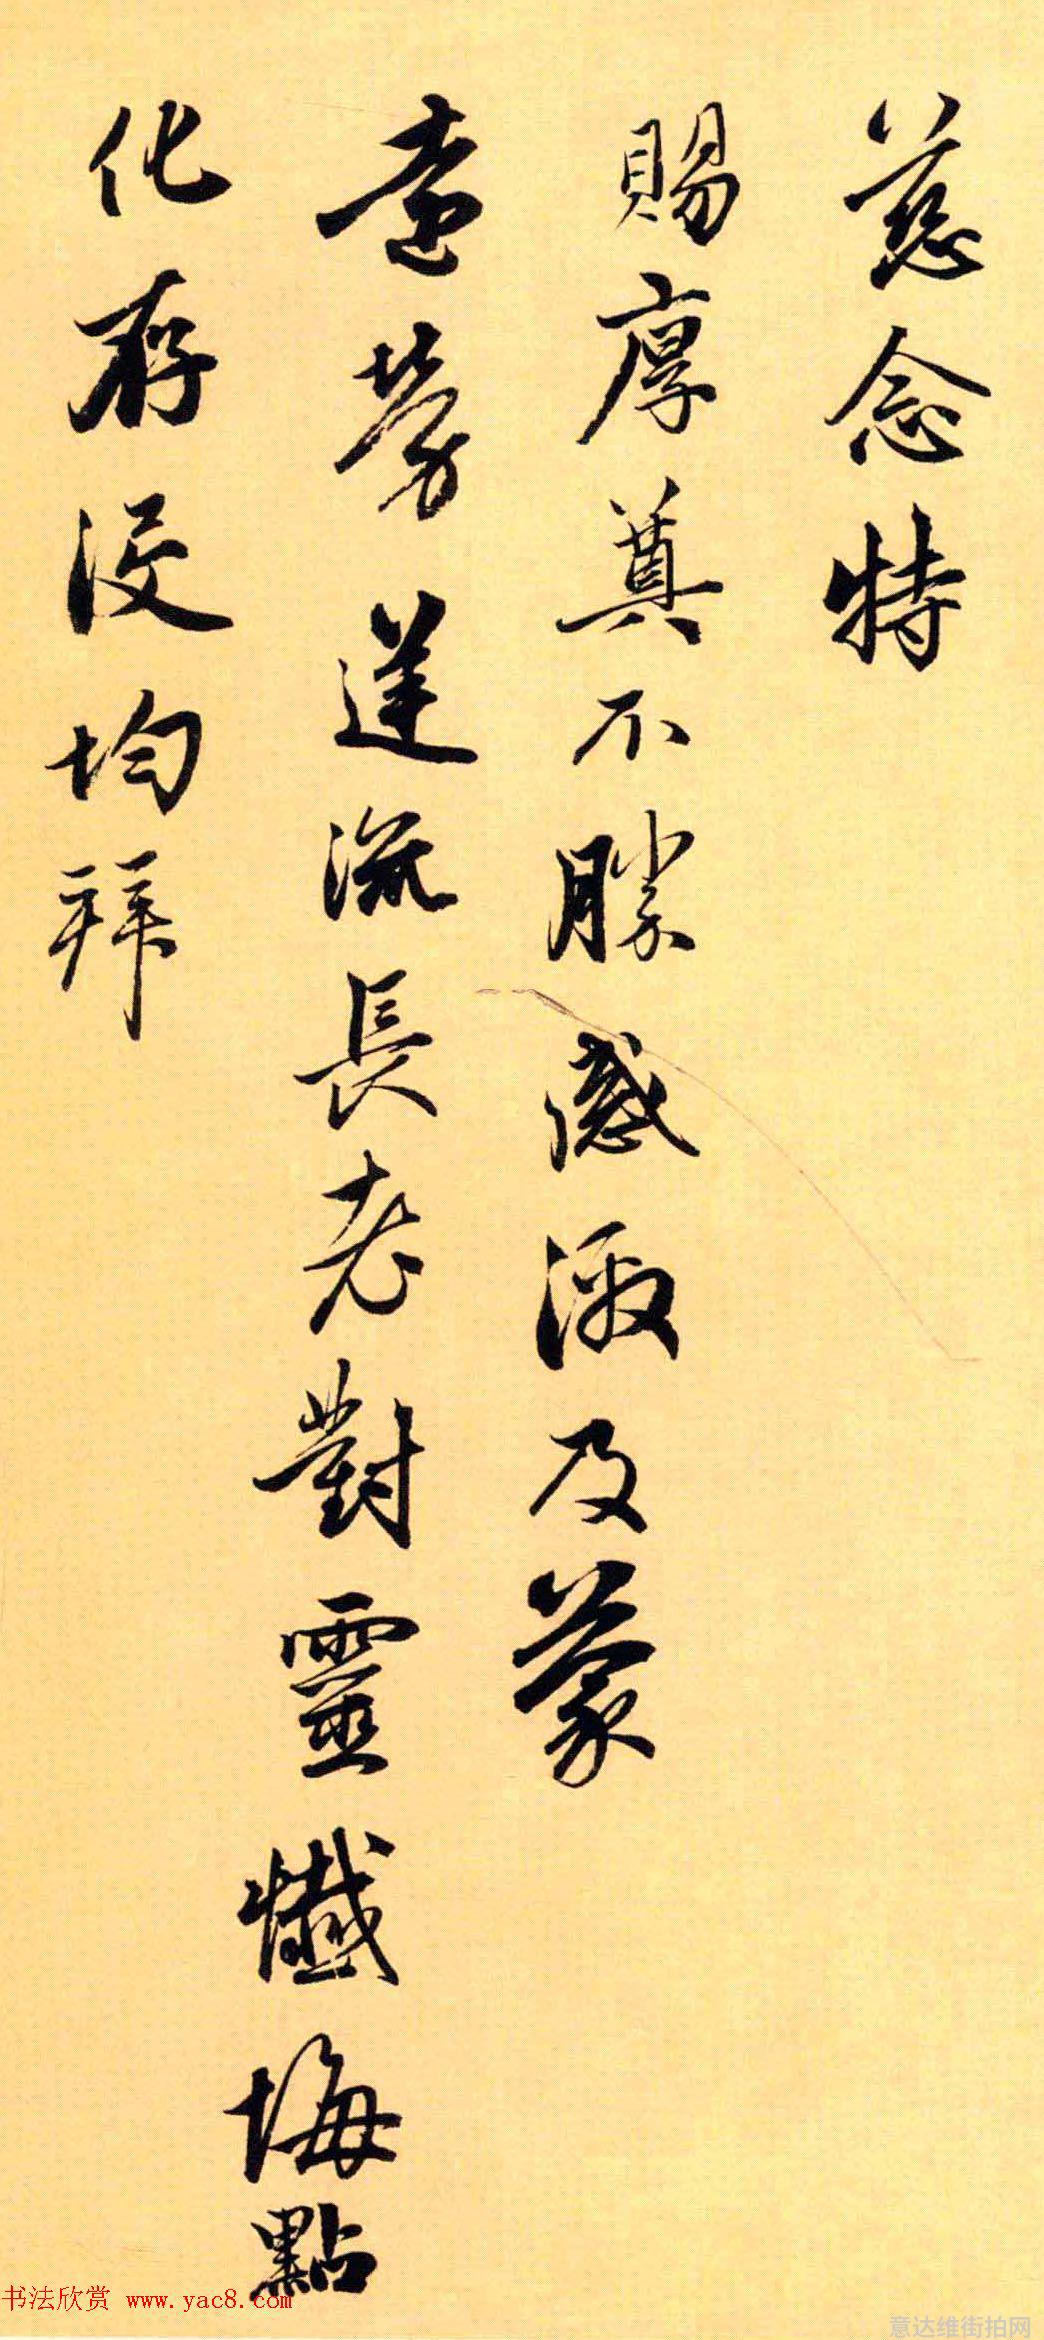 慈念特
賜厚奠不勝感激及蒙
遠勞達流長老對靈懺悔點
化存没均拜
书法欣赏 www.yac8.com
意达维街拍网